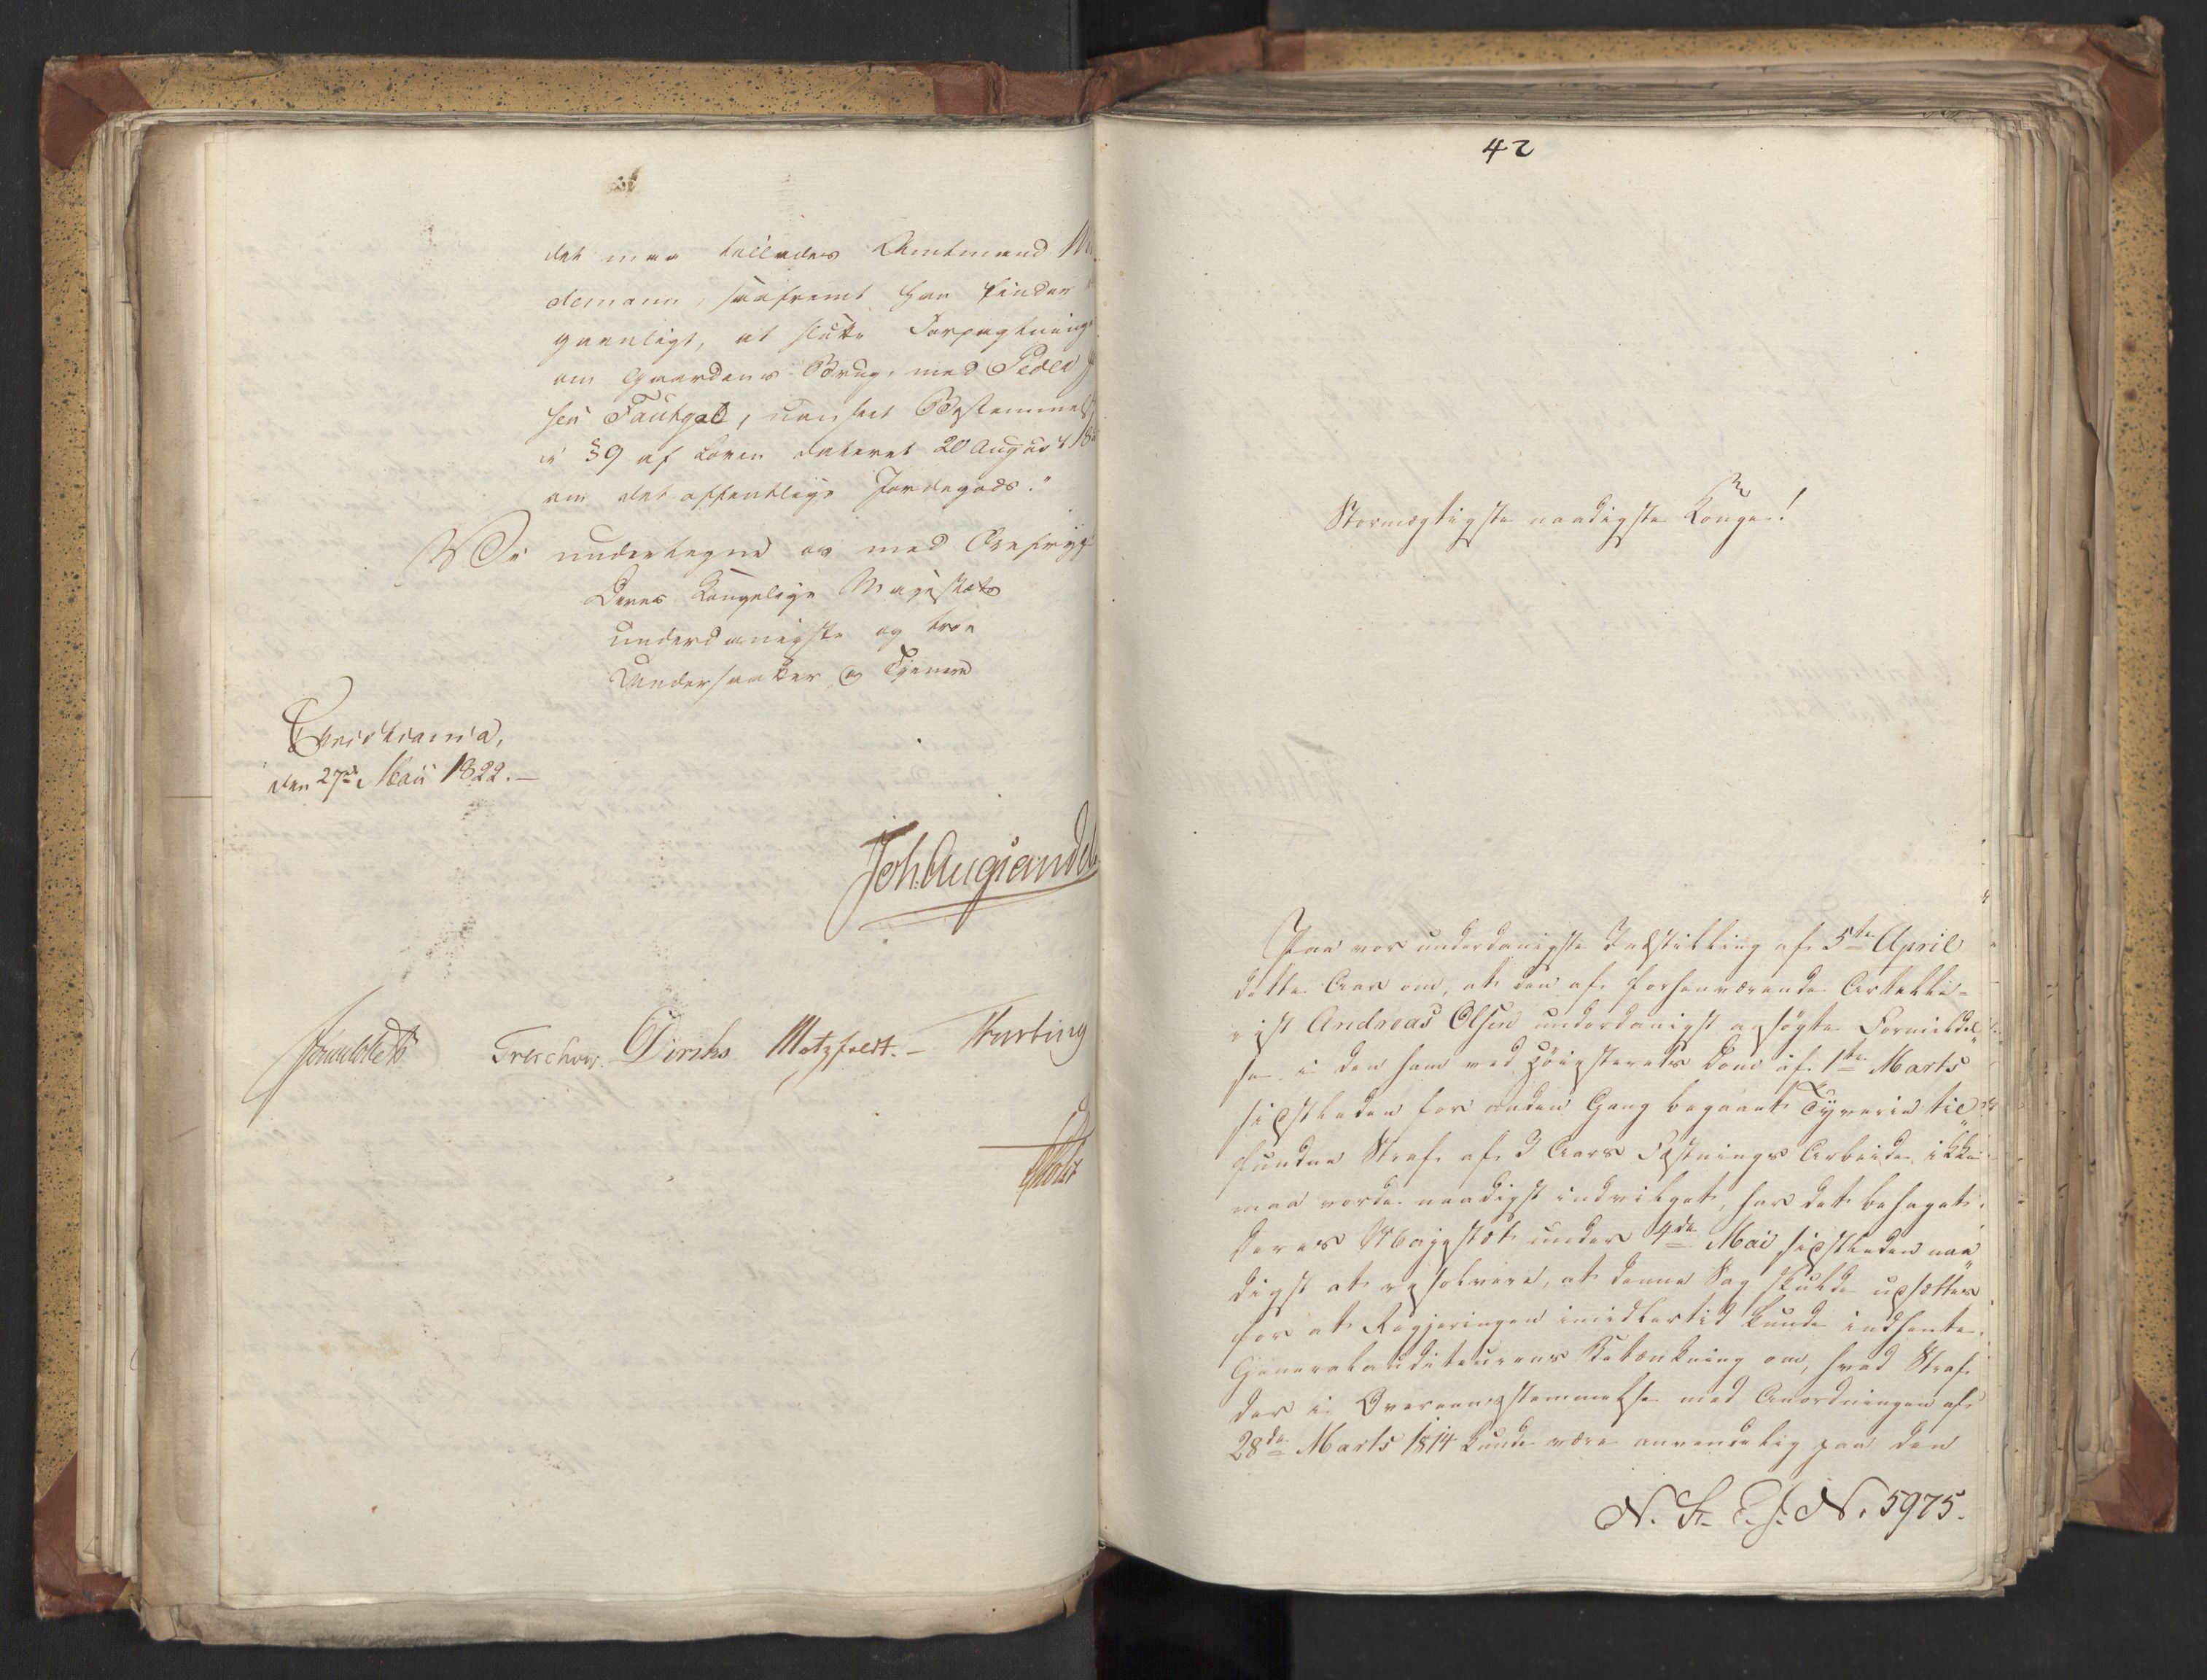 det maa tillades Amtmand
demann, saafremt han finder
gavnligt, at slutte Forpagtning
om Gaardens Brug, med Peder
sen Tautgal, uanseet Bestemmel
i §9 af Loven dateret 20 August 18
om det offentlige Jordegods."
Vi undertegne os med Ærefrygt
Deres Kongelige Majestæts
underdanigste og troe
Undersaatter og Tjenere
Christiania,
den 27de Maii 1822.-
Joh. Aug Sandel
Sommelhielm Treschow. Diriks Motzfeldt.- Fasting
Holst
42
Stormægtigste naadigste Konge!
Paa vor underdanigste Indstilling af 5te April
dette Aar om, at den af forhenværende Artille-
rist Andreas Olsen underdanigst ansøgte Formildel„
se i den ham ved Høiesterets Dom af 1te Marts
sidstleden for anden Gang begaaet Tyverie til„
fundne Straf af 3 Aars Fæstnings Arbeide, ikke
maa vorde naadigst indvilget, har det behaget
Deres Majestæt under 4de Mai sidstleden naa„
digst at resolvere, at denne Sag skulde opsættes
for at Regjeringen imidlertid kunde indhente
Generalauditeurens Betænkning om, hvad Straf
der i Overeensstemmelse med Anordningen af
28de Marts 1814 kunde være anvendelig paa den
N. St. C. J. N. 5975.